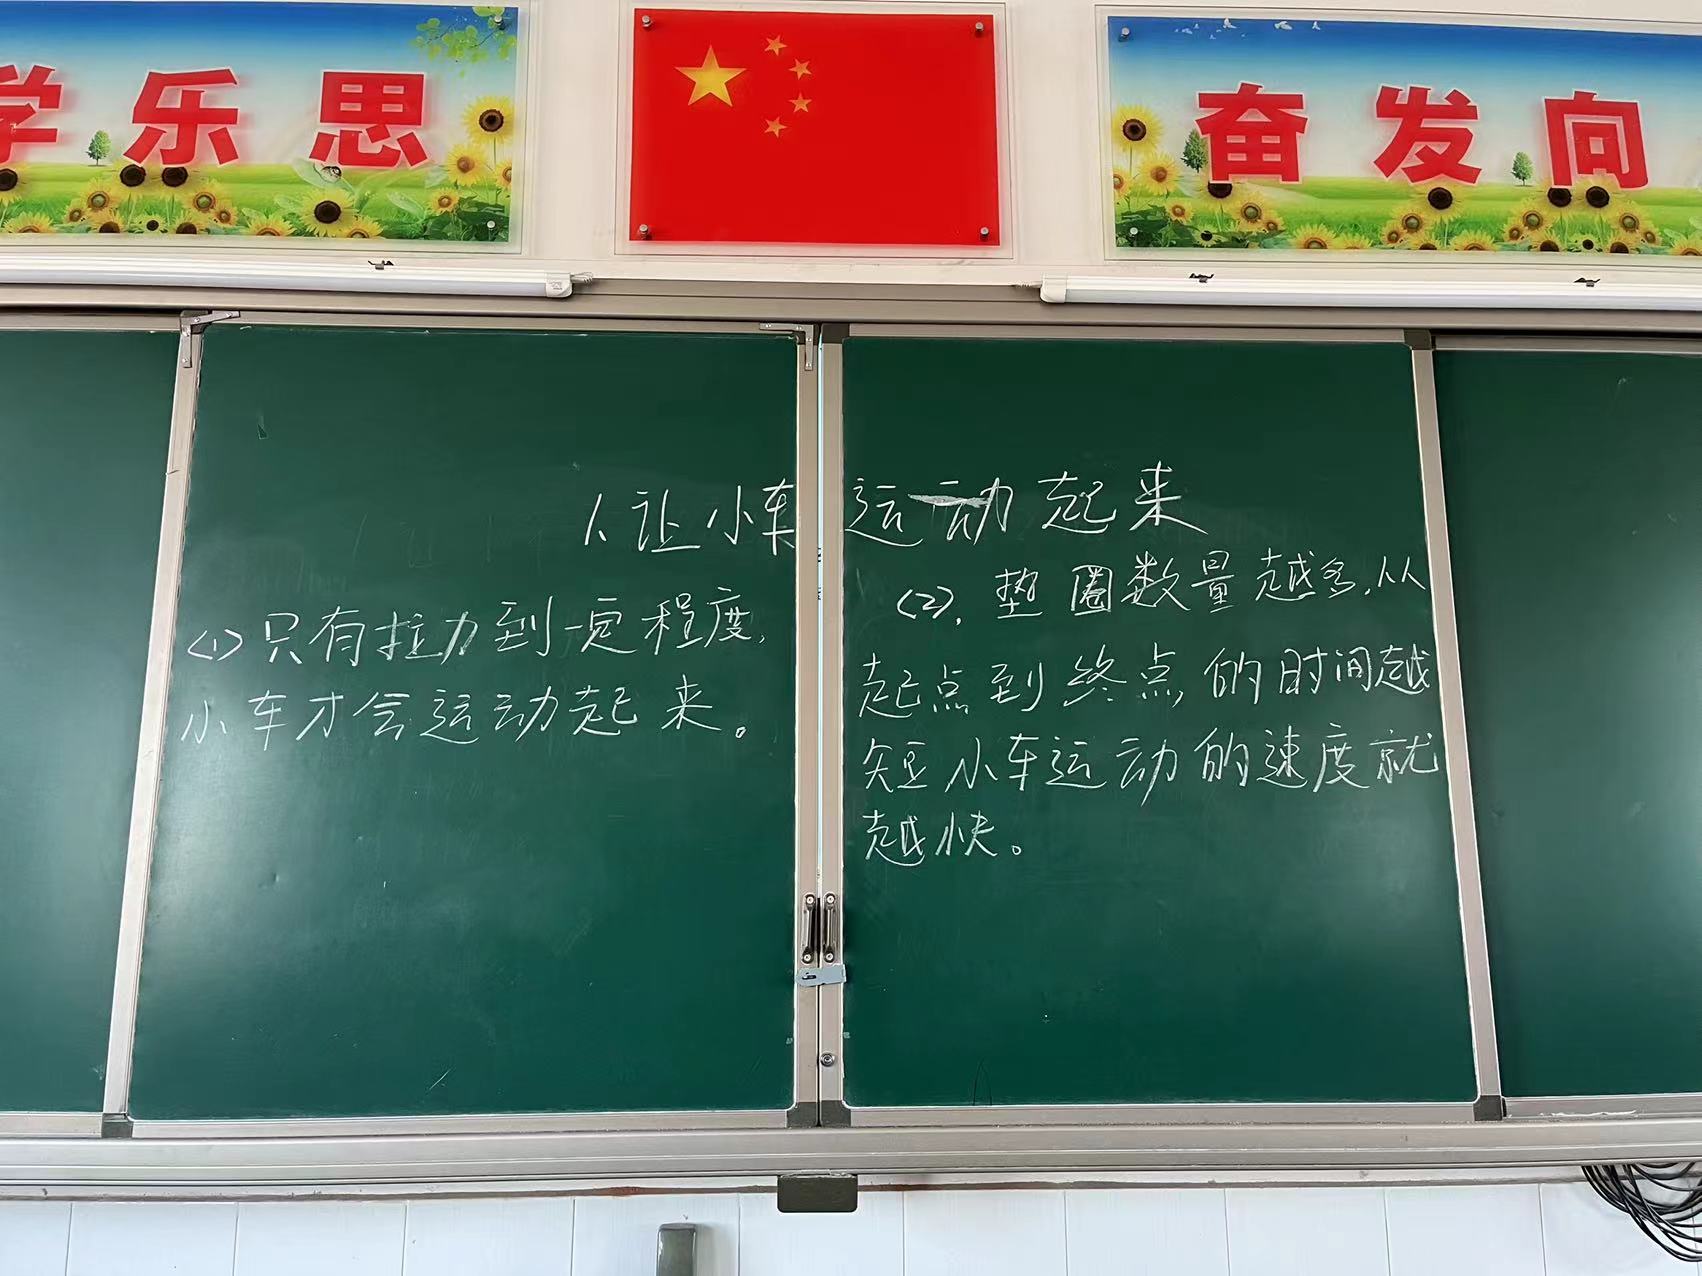 学乐思
奋发向
1、让小车运动起来
<1>只有拉力到一定程度,
小车才会运动起来。
<2>,垫圈数量越多,从
起点到终点,的时间越
短小车运动的速度就
越快。